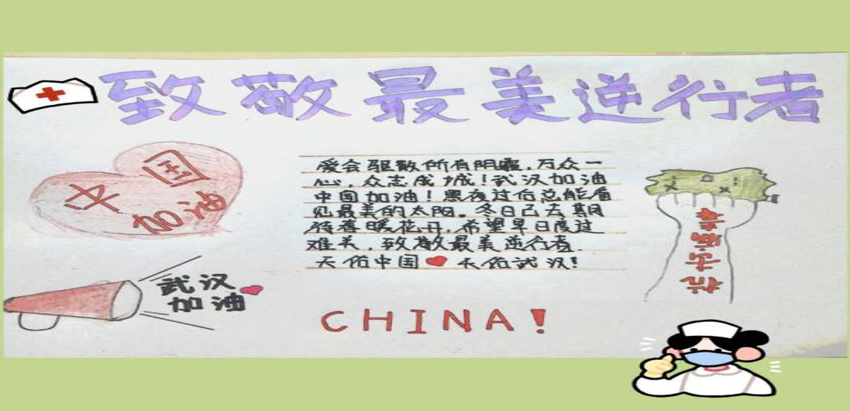 致敬最美逆行者
中国
加油
爱会驱散所有阴霾,万众一
心,众志成城!武汉加油
中国加油!黑夜过后总能看
见最美的太阳。冬日已去期
待春暖花开,希望早日度过
难关,致敬最美逆行者.
天佑中国 天佑武汉!
抗击病毒
武汉
加油
CHINA!